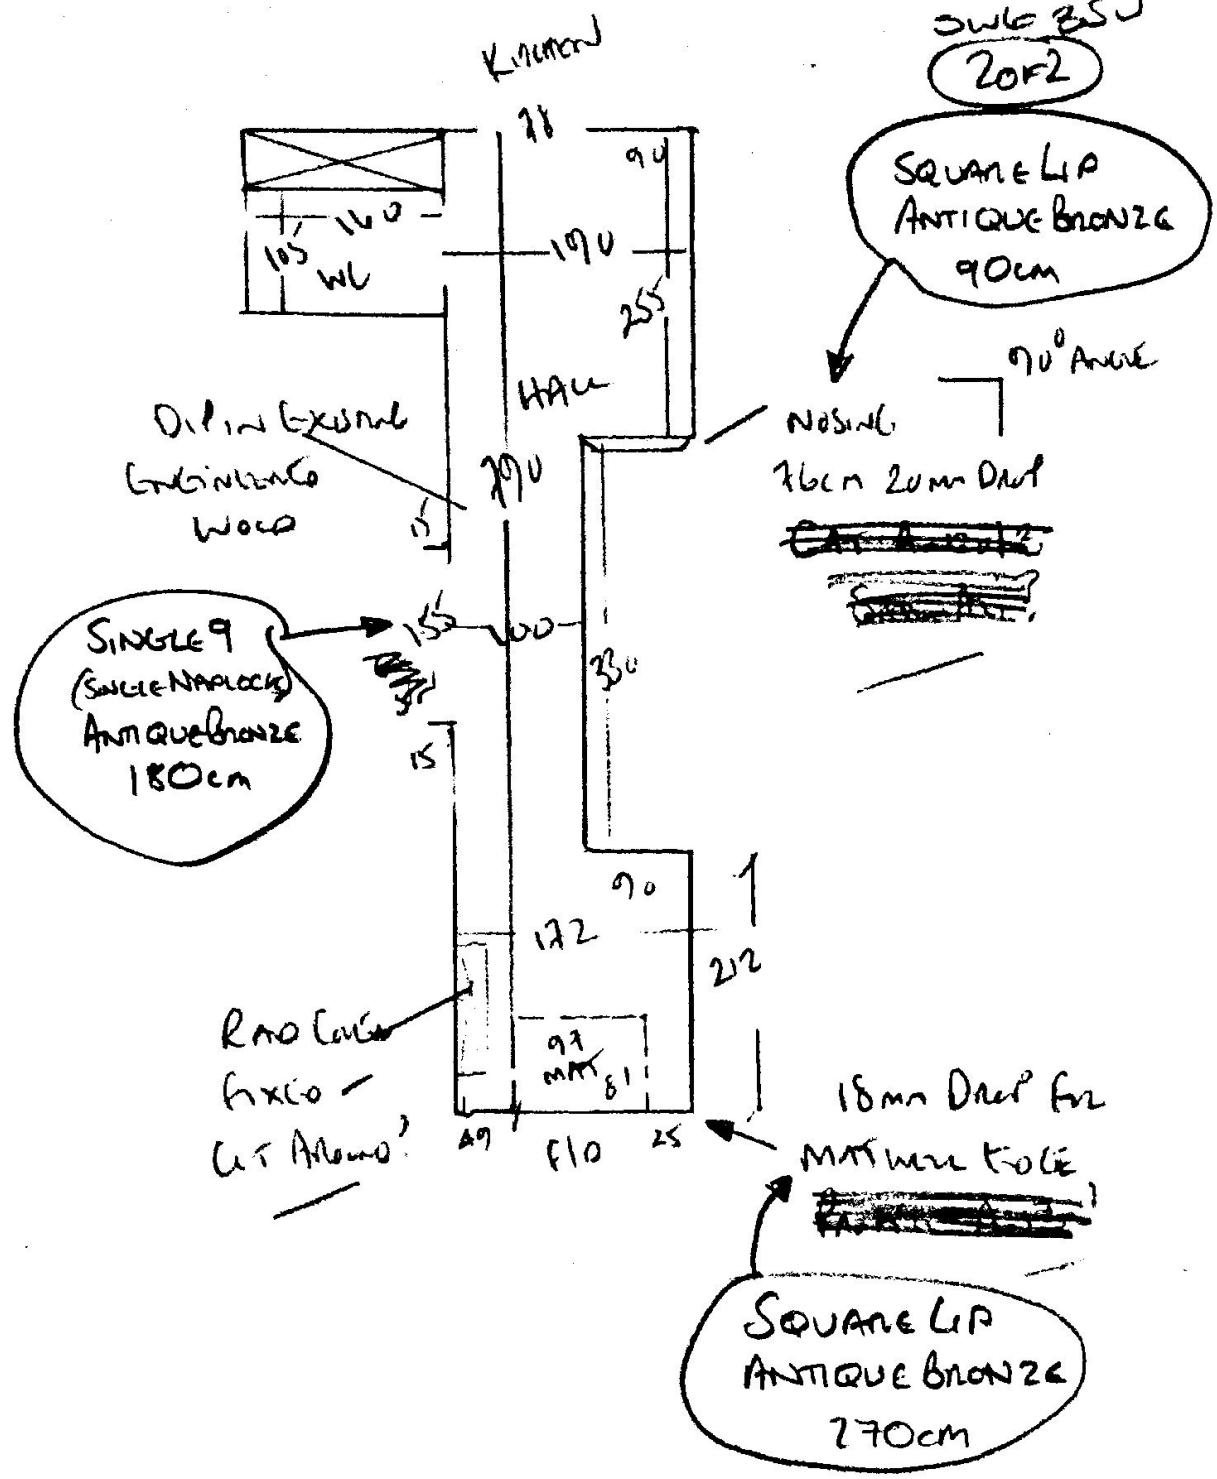 2 OF 2
KITCHEN
78
90
SQUARE LIP
ANTIQUE BRONZE
90cm
160
105
WC
190
255
90° ANGLE
HALL
NOSING
76cm 20mm DROP
DIP IN EXISTING
ENGINEERED
WOOD
790
15
SINGLE 9
(SINGLE NAPLOCK)
ANTIQUE BRONZE
180cm
155
100
330
15
90
172
212
RAD COVER
FIXED -
CUT AROUND?
97
MAT 81
49
F/D
25
18mm DROP FOR
MATWELL EDGE
SQUARE LIP
ANTIQUE BRONZE
270cm